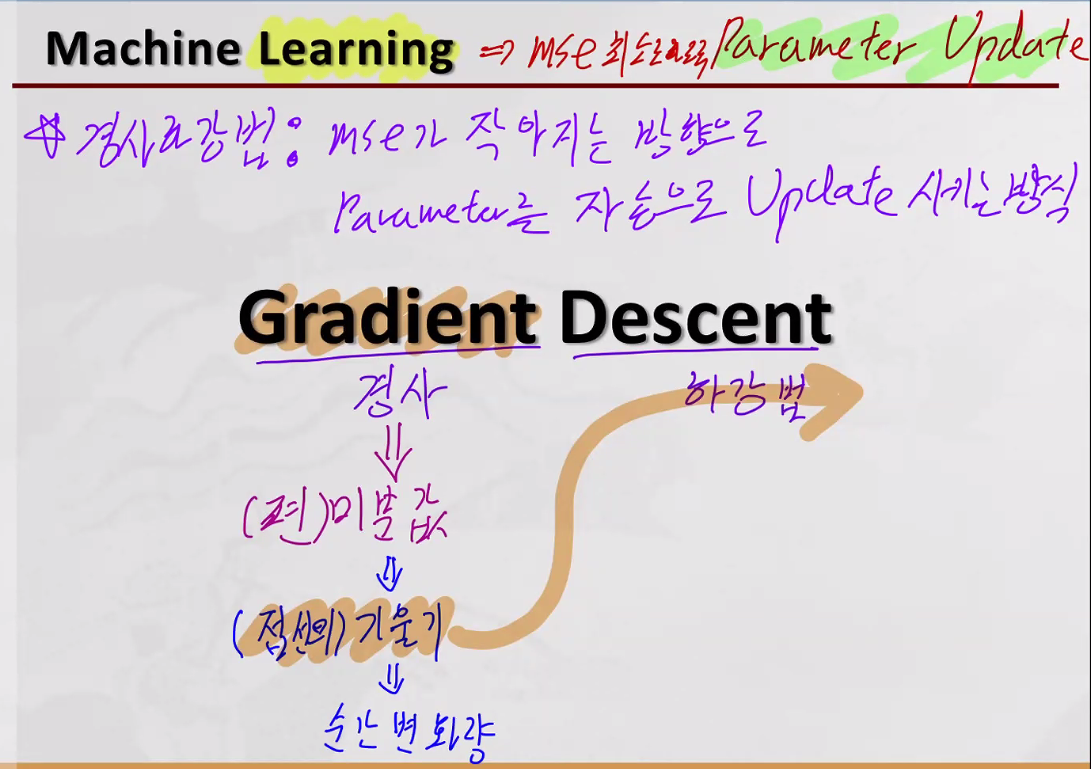 Machine Learning ⇒ mse 최소화되도록 Parameter Update
☆ 경사하강법: mse가 작아지는 방향으로
Parameter를 자동으로 Update 시키는 방식
Gradient Descent
경사 하강법
⇓
(편)미분값
⇓
(접선의) 기울기
⇓
순간변화량